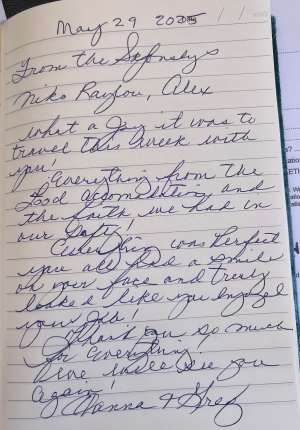 May 29 20
From the
Niko Raylou, Alex
What a joy it was to
travel this week with
you!
Everything from the
food accomodations and
the faith we had in
our safety!
Everything was perfect
you all had a smile
on your face and truly
looked like you enjoyed
your job!
Thank you so much
for everything.
Love will see you
again!
Hanna & Greg